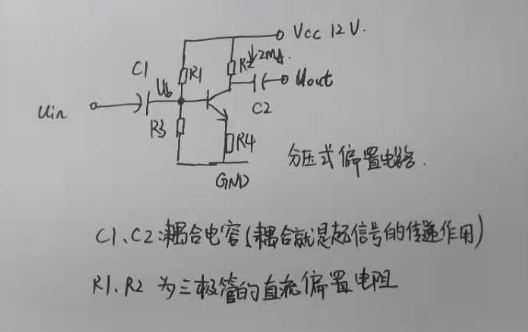 Vcc 12V.
R1
R2
2mA
C1
Ub
Uout
C2
Uin
R3
R4
GND
分压式偏置电路.
C1、C2:耦合电容(耦合就是起信号的传递作用)
R1、R2 为三极管的直流偏置电阻